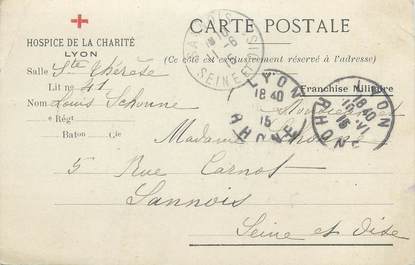 CARTE POSTALE
HOSPICE DE LA CHARITÉ
LYON
(Ce côté est exclusivement réservé à l'adresse)
Salle Ste Thérèse
Franchise Militaire
Lit no 41
Nom Louis Schonne
Monsieur et
° Régt
Madame Schonne
Baton Cie
5 Rue Carnot
Sannois
Seine et Oise
SANNOIS
SEINE
LYON
18 40
15
RHONE
LYON
18 40
VI
15
RHONE